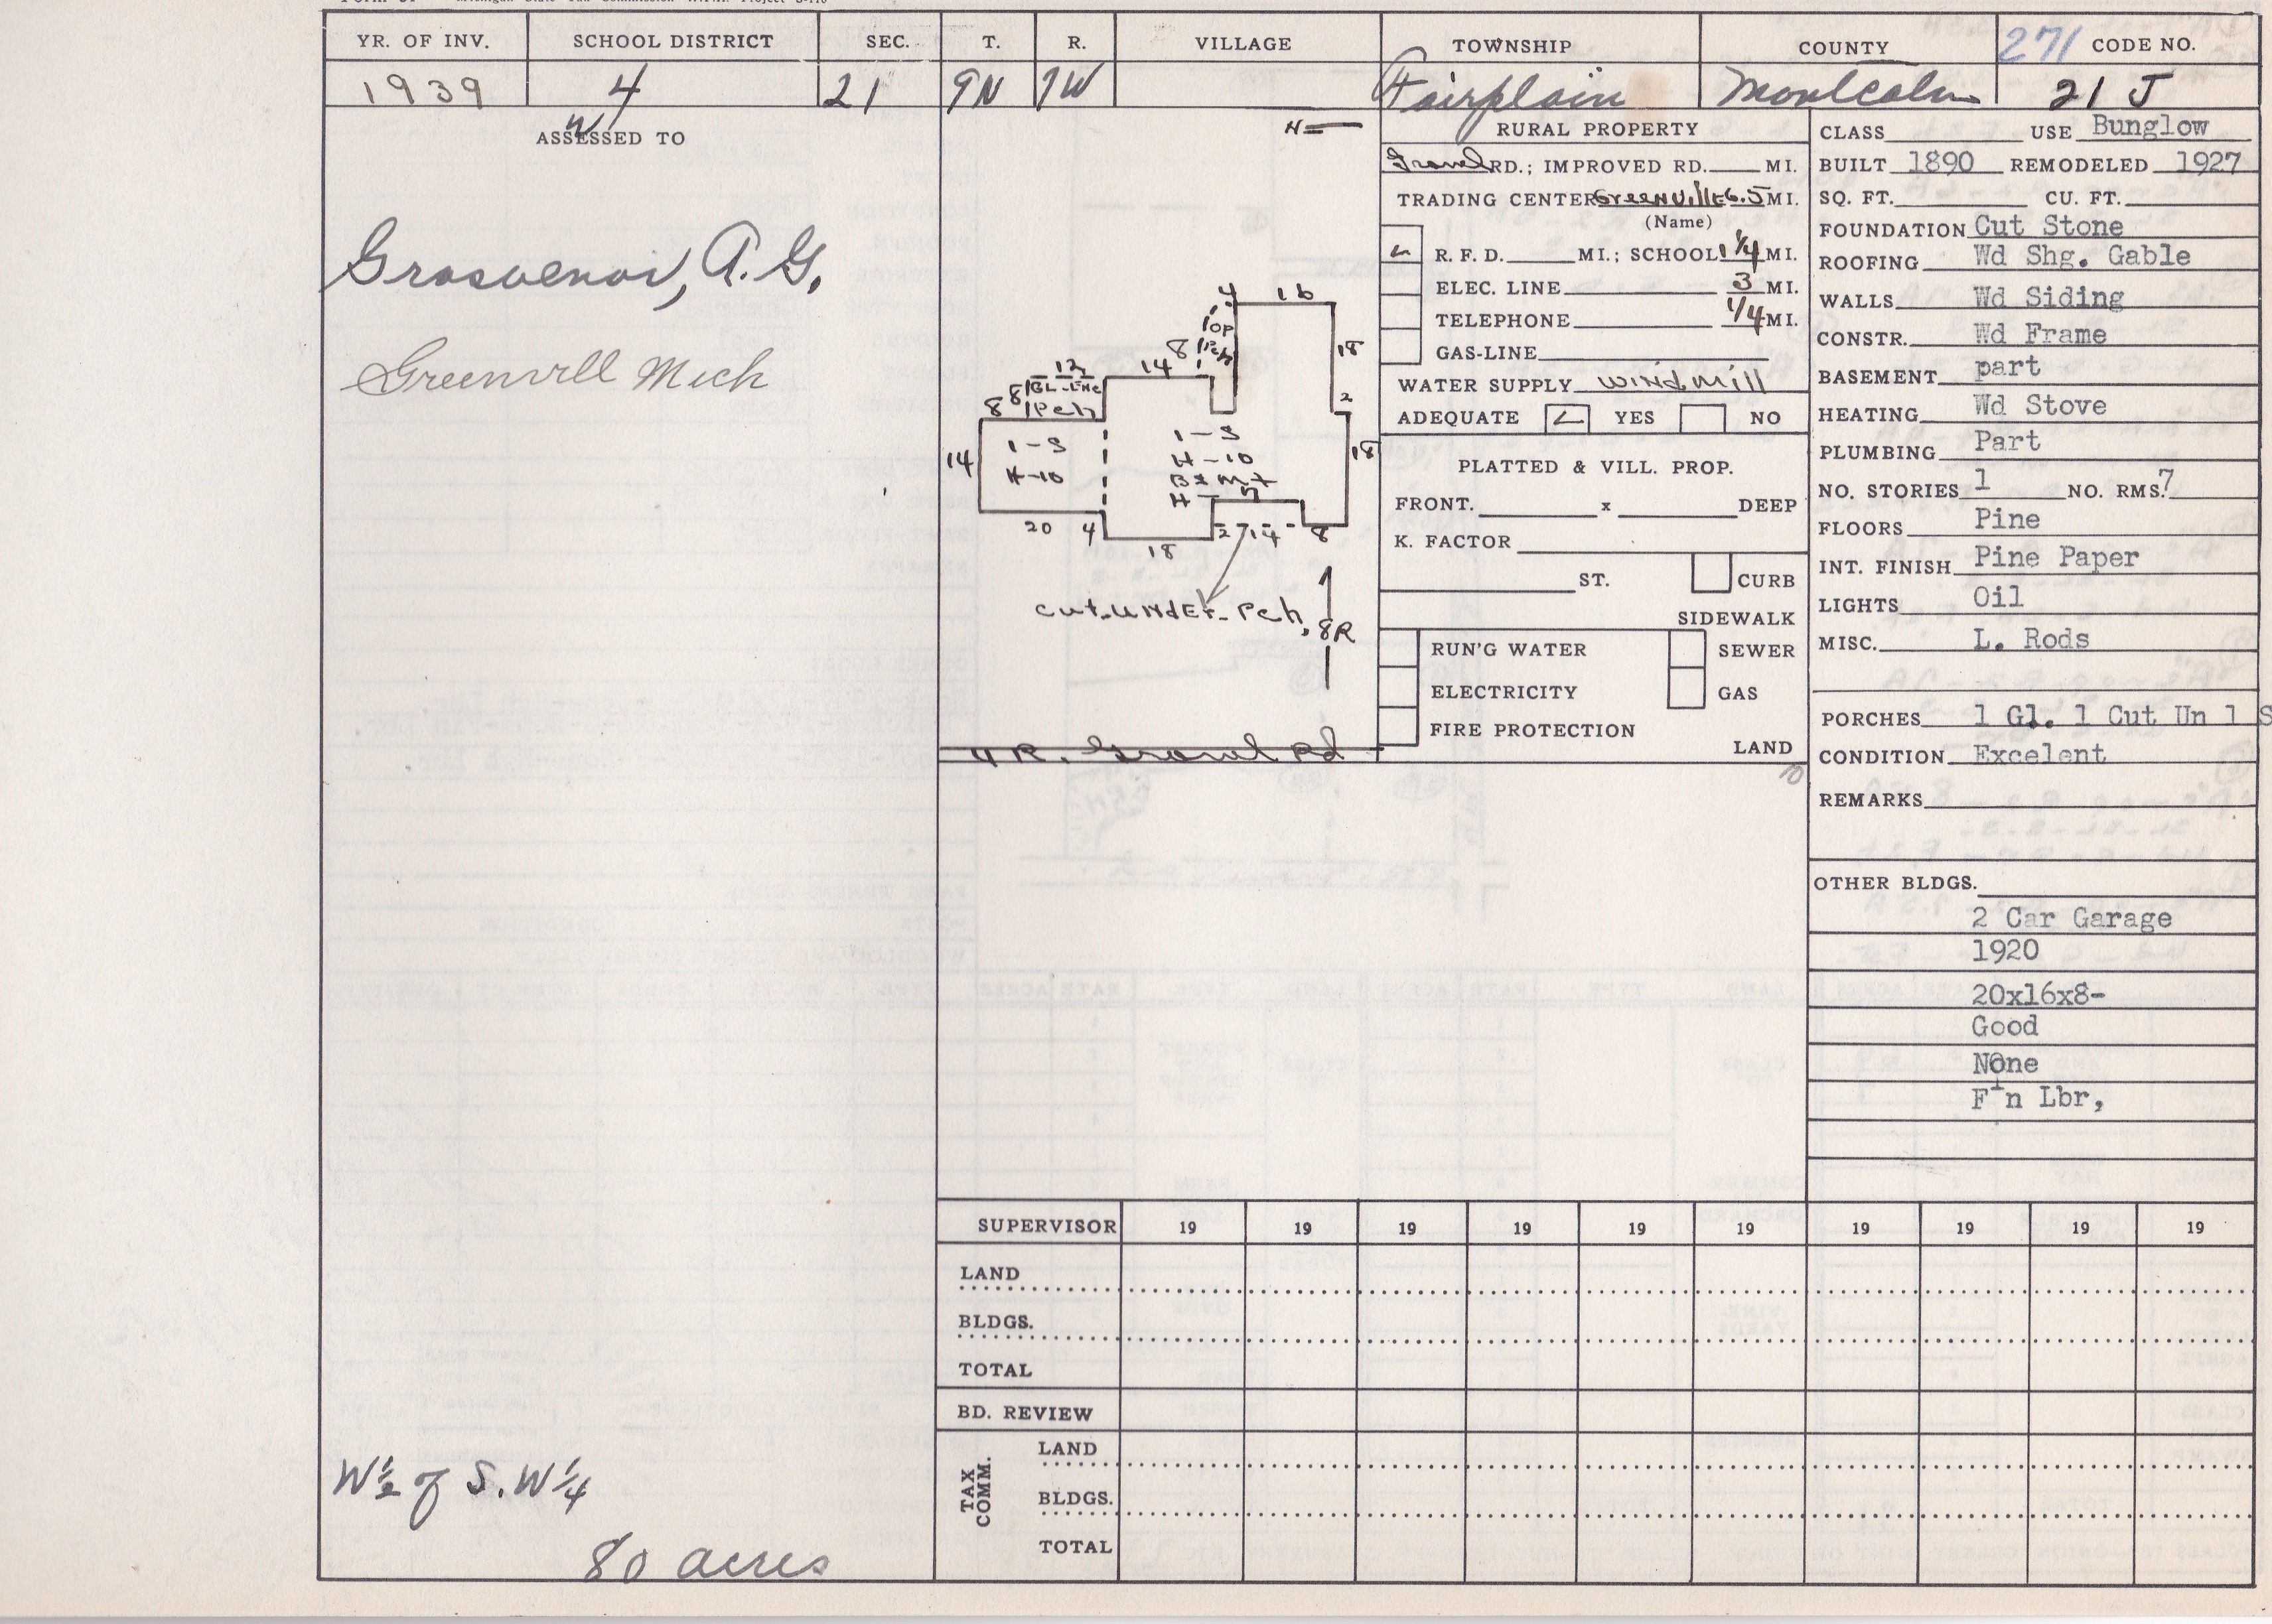 Michigan State Tax Commission W.P.A. Project
YR. OF INV. SCHOOL DISTRICT SEC. T. R. VILLAGE TOWNSHIP COUNTY 271 CODE NO.
1939 4 21 9N 7W Fairplain Montcalm 21 J
ASSESSED TO
W
Grosvenor, A. G.
Greenvill Mich
W 1/2 of S. W 1/4
80 acres
N
4 16
OP
Pch
8
18
12
14
GL-ENC
8
8 Pch
2
14
1-S
H-10
1-S
H-10
Bsmt
H-7
18
20 4 18 2 14 8
Cut-under-Pch
8R
4 R. Gravel Rd
RURAL PROPERTY
Gravel RD.; IMPROVED RD. MI.
TRADING CENTER Greenville 6.5 MI.
(Name)
R. F. D. MI.; SCHOOL 1 1/4 MI.
ELEC. LINE 3 MI.
TELEPHONE 1/4 MI.
GAS-LINE
WATER SUPPLY windmill
ADEQUATE YES NO
PLATTED & VILL. PROP.
FRONT. x DEEP
K. FACTOR
ST. CURB
SIDEWALK
RUN'G WATER SEWER
ELECTRICITY GAS
FIRE PROTECTION
LAND
CLASS USE Bunglow
BUILT 1890 REMODELED 1927
SQ. FT. CU. FT.
FOUNDATION Cut Stone
ROOFING Wd Shg. Gable
WALLS Wd Siding
CONSTR. Wd Frame
BASEMENT part
HEATING Wd Stove
PLUMBING Part
NO. STORIES 1 NO. RMS. 7
FLOORS Pine
INT. FINISH Pine Paper
LIGHTS Oil
MISC. L. Rods
PORCHES 1 Gl. 1 Cut Un 1 S
CONDITION Excelent
REMARKS
OTHER BLDGS.
2 Car Garage
1920
20x16x8-
Good
None
Fin Lbr,
SUPERVISOR 19 19 19 19 19 19 19 19 19 19
LAND
BLDGS.
TOTAL
BD. REVIEW
TAX COMM.
LAND
BLDGS.
TOTAL